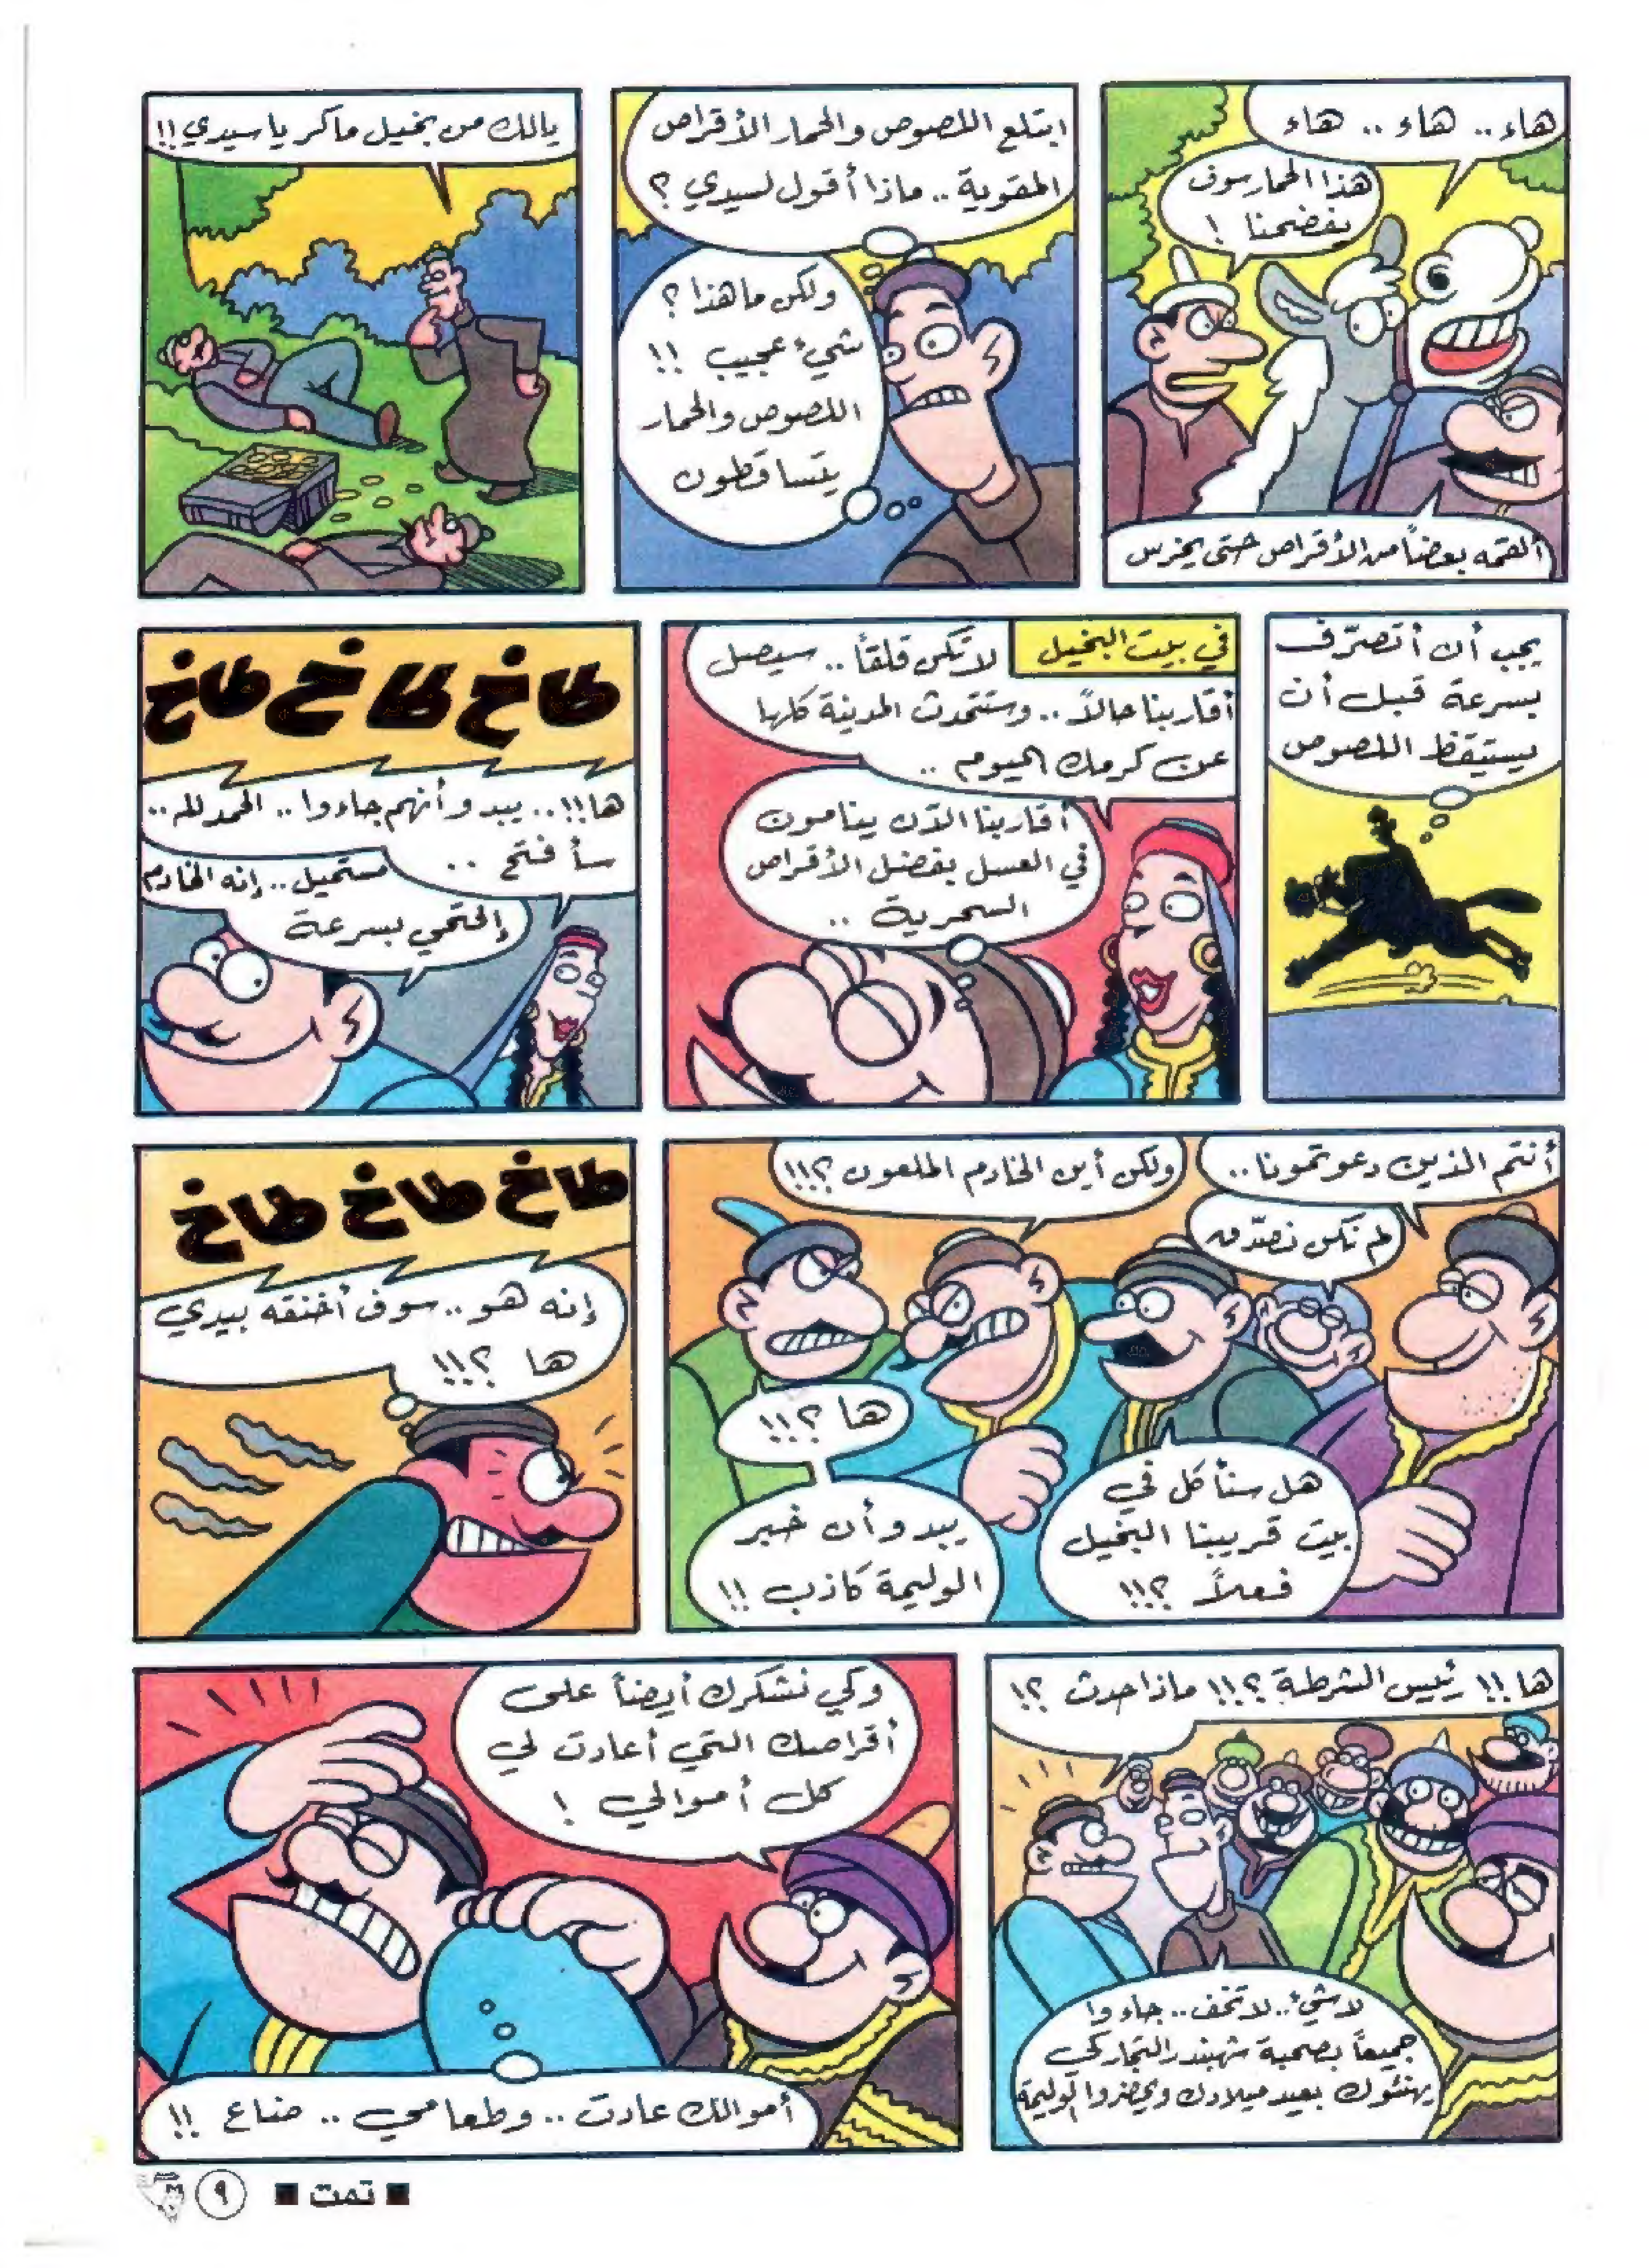 هاء.. هاء .. هاء
هذا الحمار سوف
يفضحنا !
ألقمه بعضاً من الأقراص حتى يخرس
ابتلع اللصوص والحمار الأقراص
المقوية .. ماذا أقول لسيدي ؟
ولكن ما هذا ؟
شيء عجيب !!
اللصوص والحمار
يتساقطون
يالك من بخيل ماكر يا سيدي !!
يجب أن أتصرّف
بسرعة قبل أن
يستيقظ اللصوص
في بيت البخيل
لا تكن قلقاً .. سيصل
أقاربنا حالاً .. وستتحدث المدينة كلها
عن كرمك اليوم ..
أقاربنا الآن ينامون
في العسل بفضل الأقراص
السحرية ..
طاخ طاخ طاخ
ها !!.. يبدو أنهم جاءوا .. الحمد لله ..
سأفتح ..
مستحيل .. إنه الخادم
إفتحي بسرعة
أنتم الذين دعوتمونا ..
لم نكن نصدّق
ولكن أين الخادم الملعون ؟!!
هل سنأكل في
بيت قريبنا البخيل
فعلاً ؟!!
ها ؟!!
يبدو أن خبر
الوليمة كاذب !!
طاخ طاخ طاخ
إنه هو .. سوف أخنقه بيدي
ها ؟!!
ها !! رئيس الشرطة ؟!! ماذا حدث ؟!
لا شيء .. لا تخف .. جاءوا
جميعاً بصحبة شهبندر التجار كي
يهنئوك بعيد ميلادك ويحضروا الوليمة
وكي نشكرك أيضاً على
أقراصك التي أعادت لي
كل أموالي !
أموالك عادت .. وطعامي .. ضاع !!
■ تمت ■ ٩